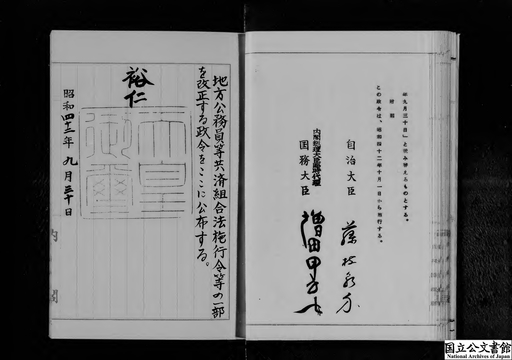 年九月三十日」と読み替えるものとする。
附則
この政令は、昭和四十二年十月一日から施行する。
自治大臣 藤枝泉介
内閣総理大臣臨時代理
国務大臣 増田甲子七
地方公務員等共済組合法施行令等の一部
を改正する政令をここに公布する。
裕仁
天皇御璽
昭和四十二年九月三十日
内閣
国立公文書館
National Archives of Japan